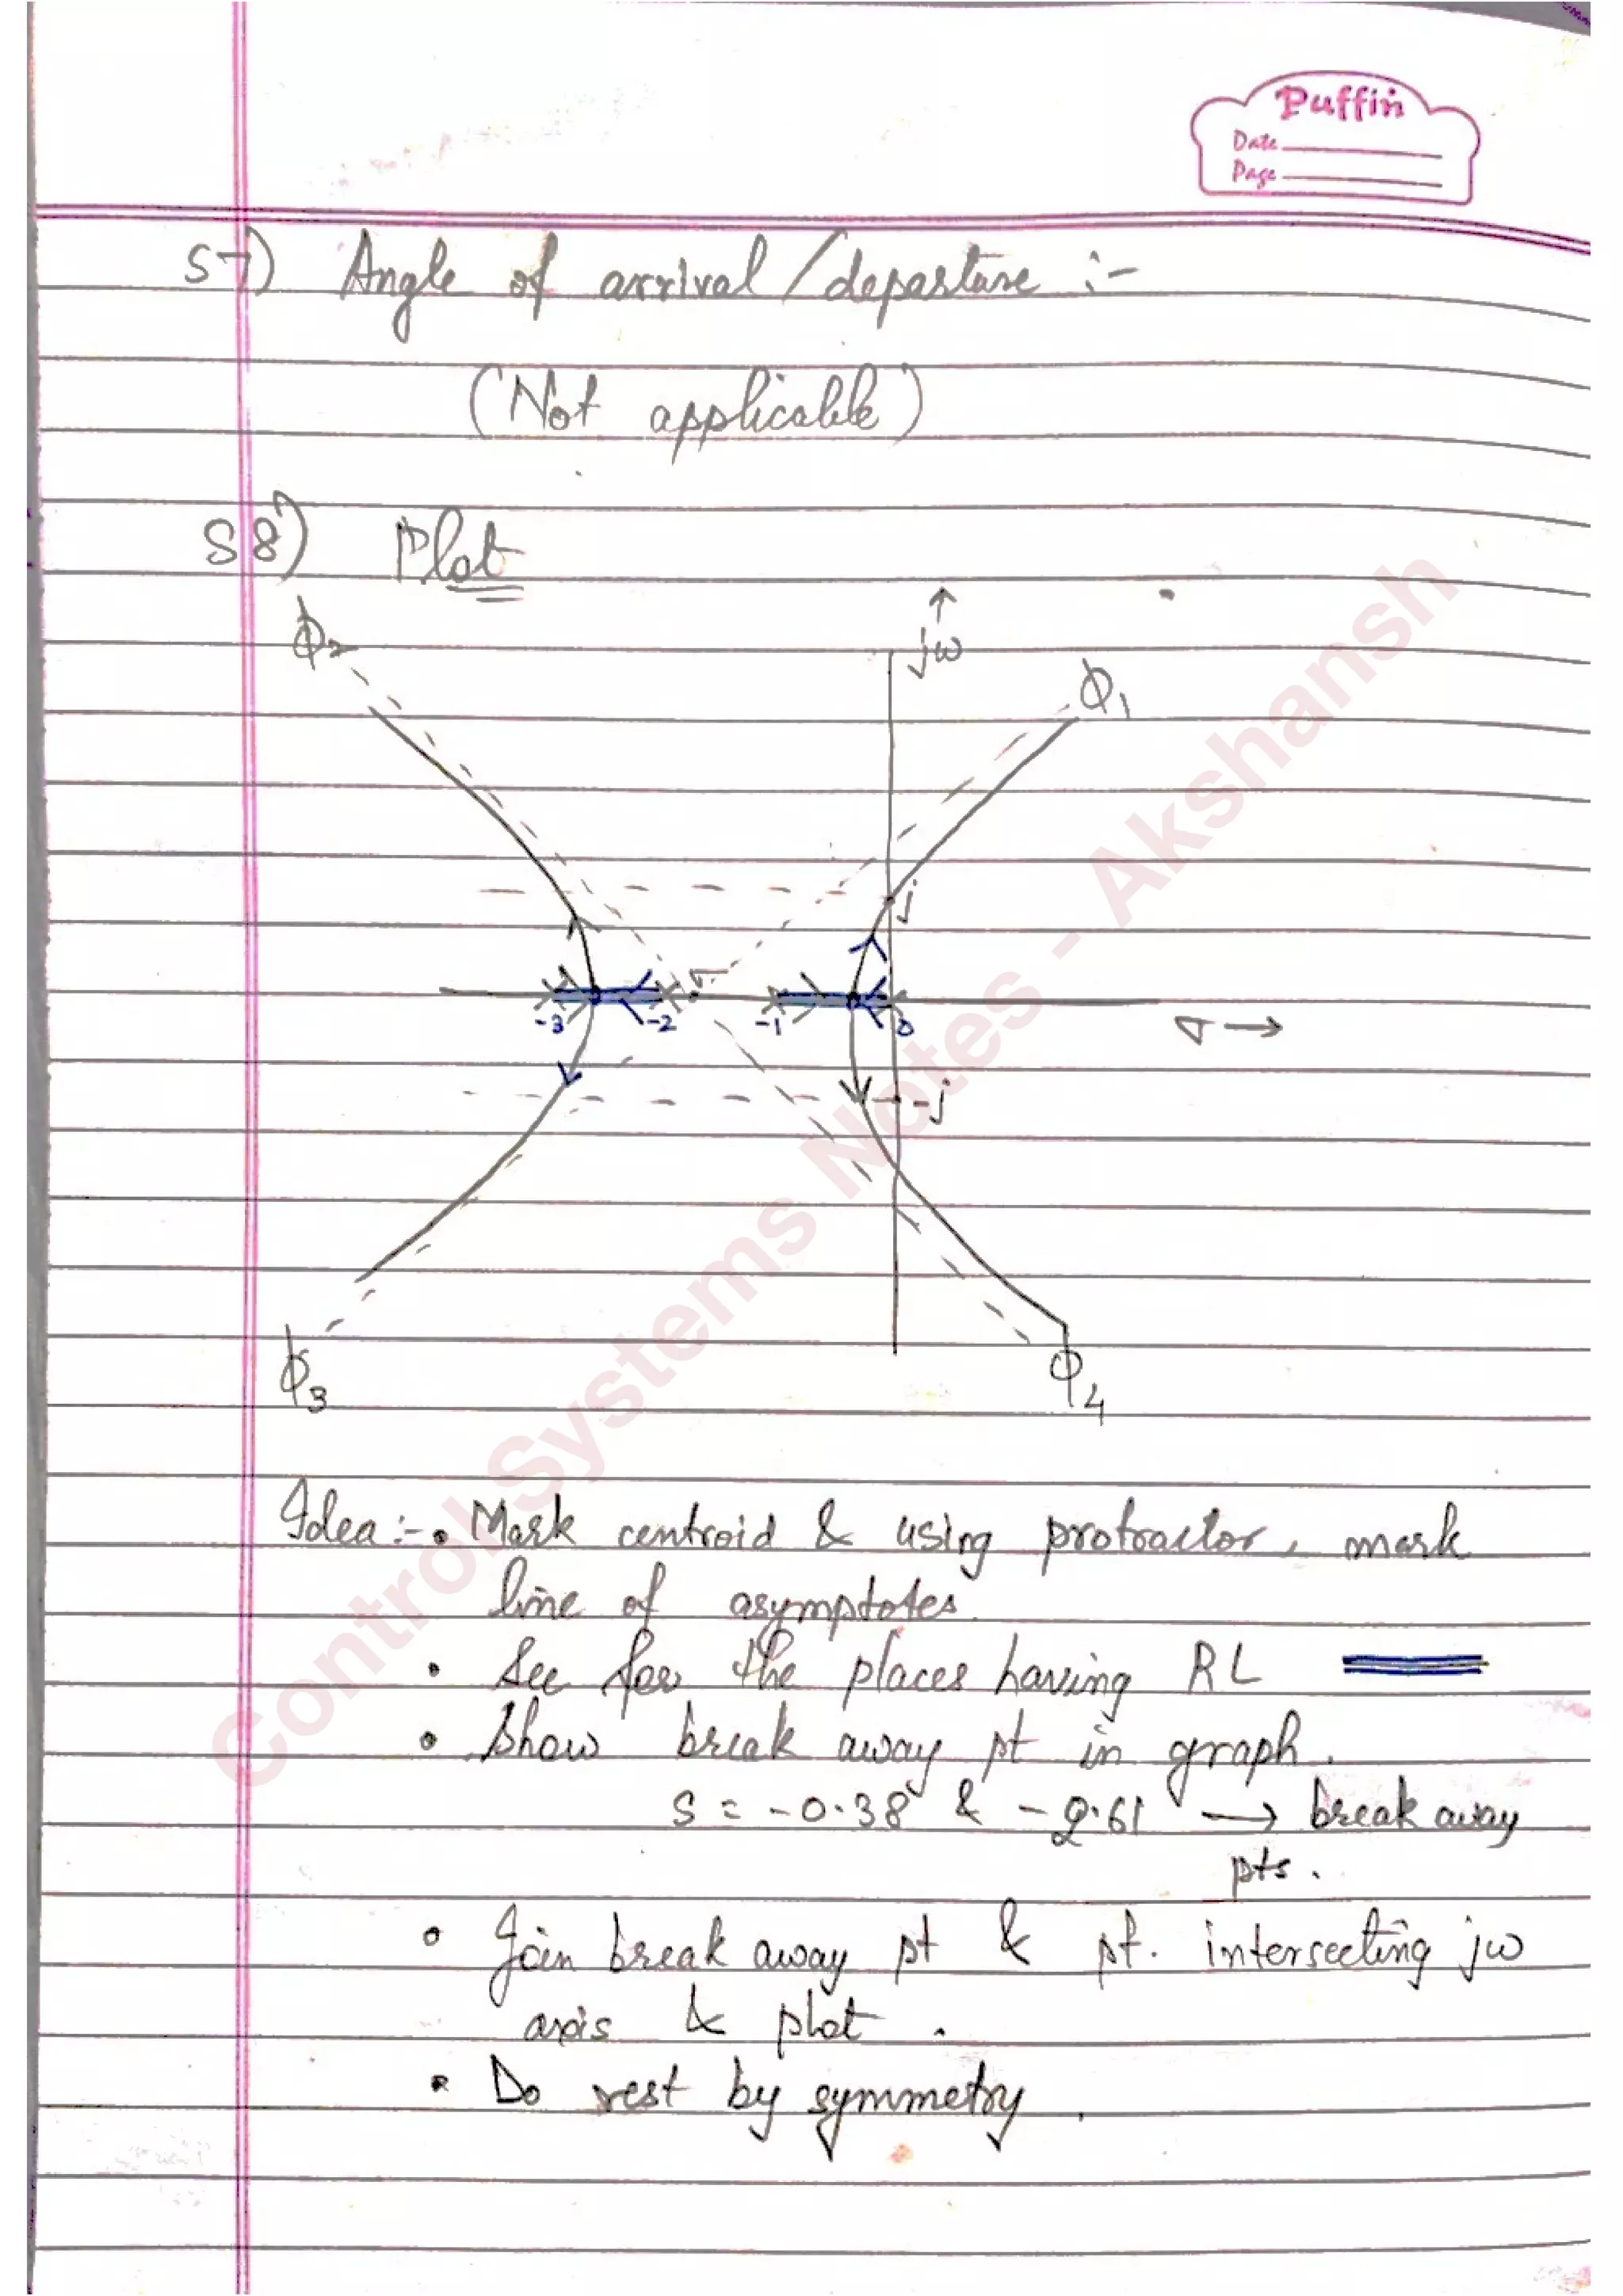 Puffin
Date
Page
S7) Angle of arrival/departure :-
(Not applicable)
S8) Plot
jω
ϕ2
ϕ1
j
-3 -2 -1 0
σ →
-j
ϕ3
ϕ4
Idea :- • Mark centroid & using protractor, mark
line of asymptotes.
• See for the places having RL
• Show break away pt in graph.
S = -0.38 & -2.61 → break away
pts.
• Join break away pt & pt. intersecting jω
axis & plot.
• Do rest by symmetry.
Control Systems Notes - Akshansh